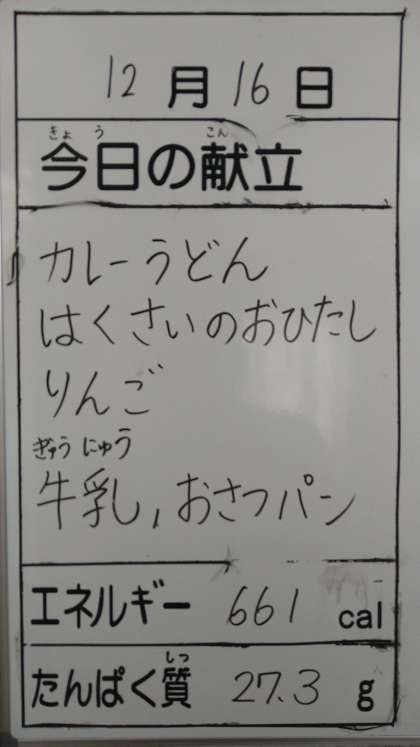 12月16日
きょう こん
今日の献立
カレーうどん
はくさいのおひたし
りんご
ぎゅうにゅう
牛乳,おさつパン
エネルギー 661 cal
しつ
たんぱく質 27.3 g